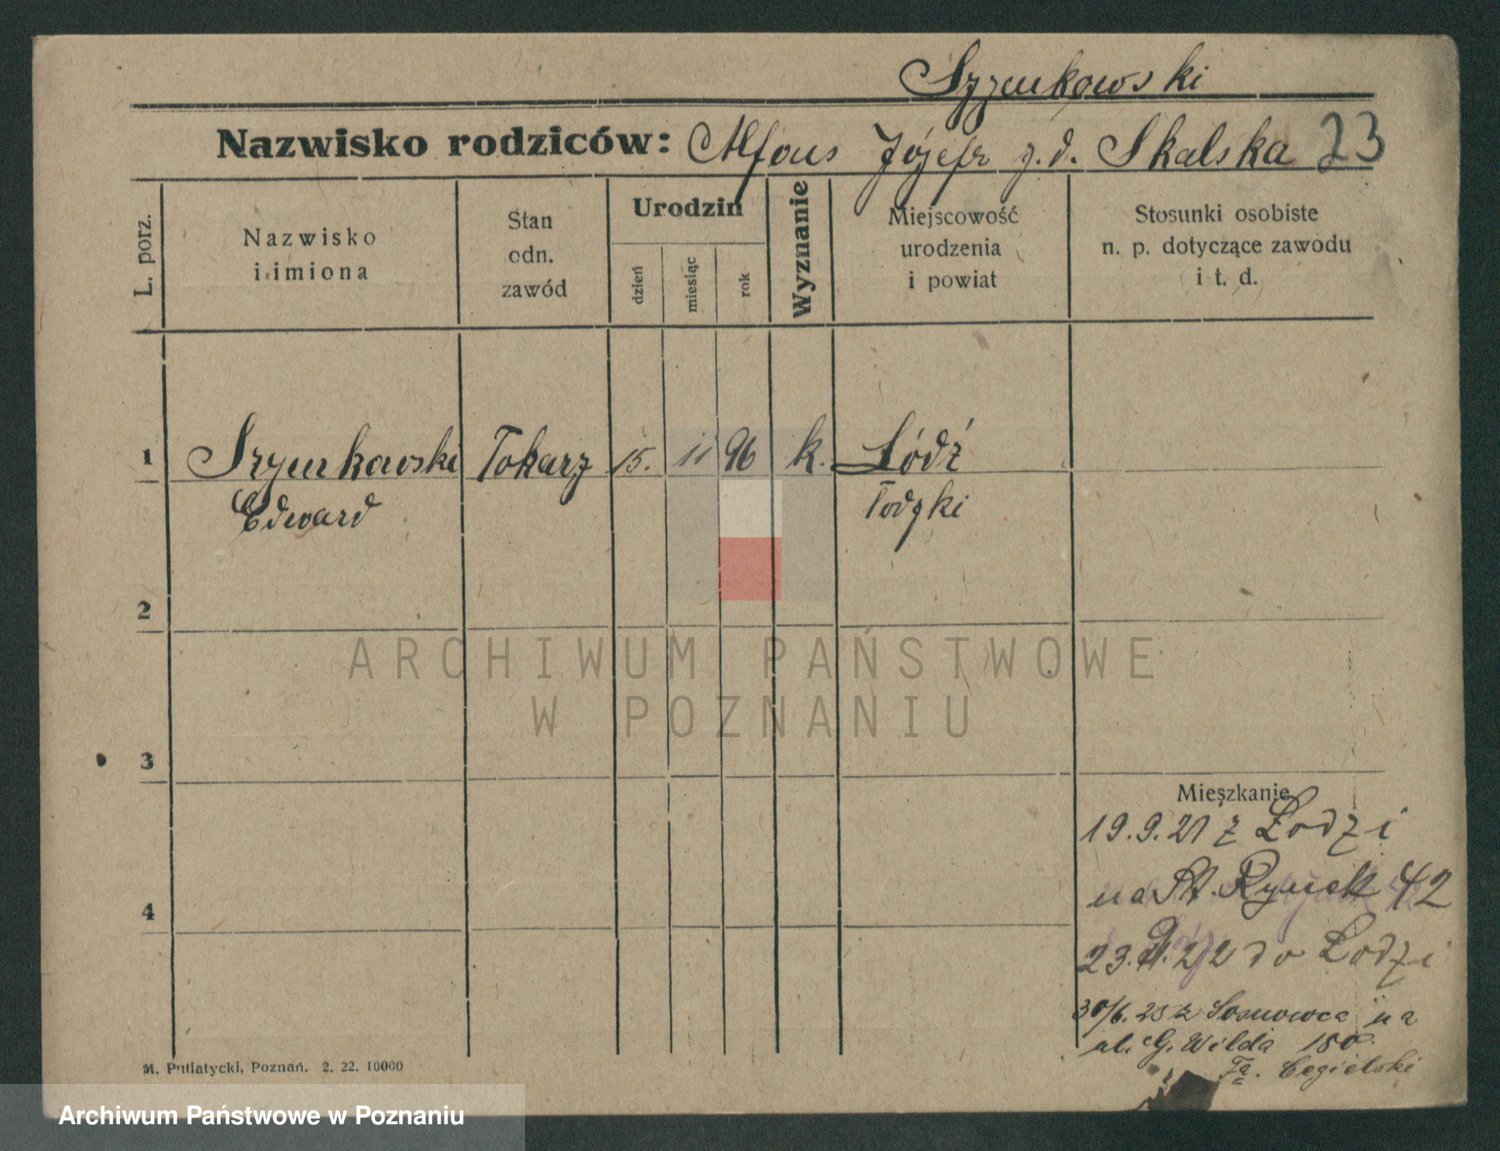 Szzurkowski
Nazwisko rodziców: Alfons Józefa z.d. Skalska 23
L. porz.
Nazwisko
i imiona
Stan
odn.
zawód
Urodzin
dzień
miesiąc
rok
Wyznanie
Miejscowość
urodzenia
i powiat
Stosunki osobiste
n. p. dotyczące zawodu
i t. d.
1 Szyurkowski Tokarz 15. 11 96 k. Łódź
Edward Łodzki
2
ARCHIWUM PAŃSTWOWE
W POZNANIU
3
Mieszkanie
19.9.21 z Łodzi
na St. Rynek 42
4
23. 22 do Łodzi
30/6. 23 z Sosnowca na
ul. G. Wilda 180
Fa. Cegielski
M. Putiatycki, Poznań. 2. 22. 10000
Archiwum Państwowe w Poznaniu